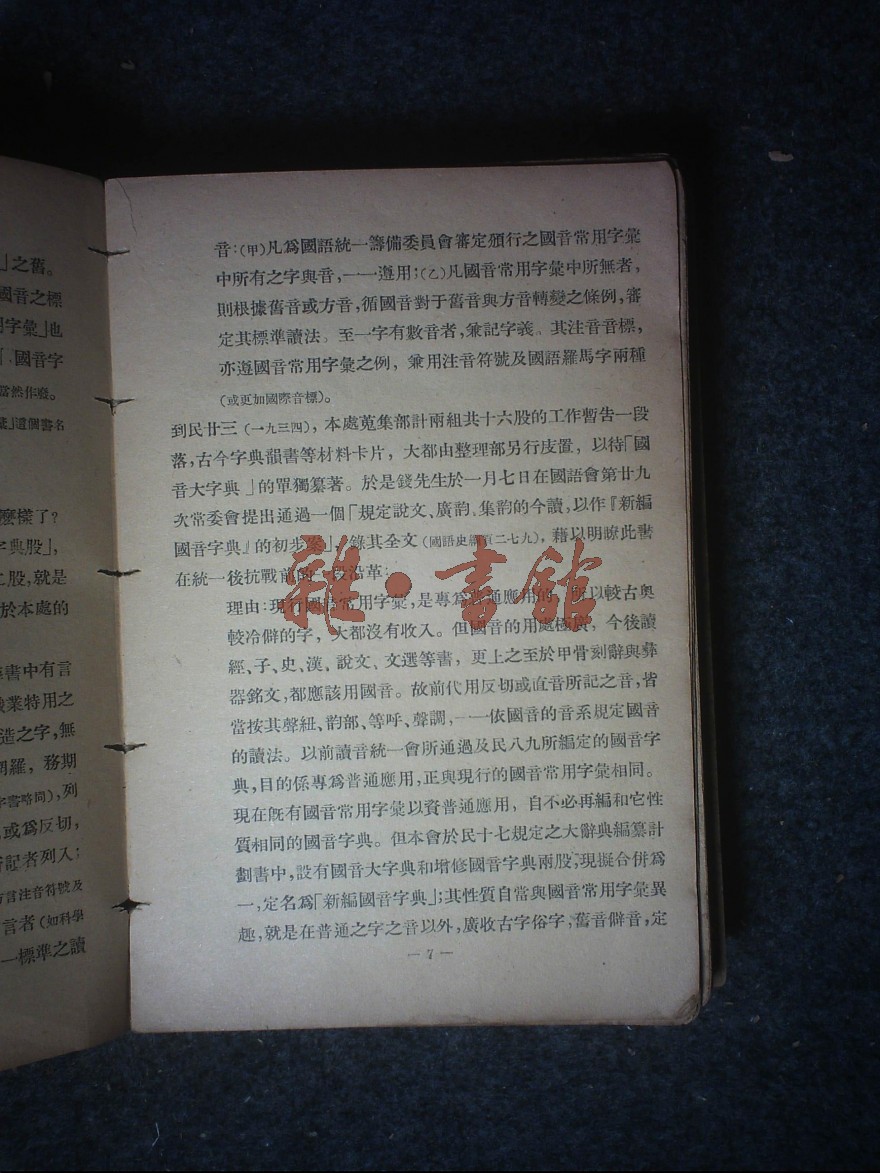 」之舊。
國音之標
用字彙」也
國音字
當然作廢。
」這個書名
麼樣了?
字典股」,
二股,就是
於本處的
書中有言
職業特用之
造之字,無
羅,務期
字書略同),列
或爲反切,
記者列入;
方言注音符號及
言者(如科學
一標準之讀
音:(甲)凡爲國語統一籌備委員會審定頒行之國音常用字彙
中所有之字與音,一一遵用;(乙)凡國音常用字彙中所無者,
則根據舊音或方音,循國音對于舊音與方音轉變之條例,審
定其標準讀法。至一字有數音者,兼記字義。其注音音標,
亦遵國音常用字彙之例,兼用注音符號及國語羅馬字兩種
(或更加國際音標)。
到民廿三(一九三四),本處蒐集部計兩組共十六股的工作暫告一段
落,古今字典韻書等材料卡片,大都由整理部另行庋置,以待「國
音大字典」的單獨纂著。於是錢先生於一月七日在國語會第廿九
次常委會提出通過一個「規定說文、廣韵、集韵的今讀,以作『新編
國音字典』的初步案」,錄其全文(國語史綱頁二七九),藉以明瞭此書
在統一後抗戰前的一段沿革:
理由:現行國音常用字彙,是專爲普通應用的,所以較古奧
較冷僻的字,大都沒有收入。但國音的用處極廣,今後讀
經、子、史、漢、說文、文選等書,更上之至於甲骨刻辭與彝
器銘文,都應該用國音。故前代用反切或直音所記之音,皆
當按其聲紐、韵部、等呼、聲調,一一依國音的音系規定國音
的讀法。以前讀音統一會所通過及民八九所編定的國音字
典,目的係專爲普通應用,正與現行的國音常用字彙相同。
現在旣有國音常用字彙以資普通應用,自不必再編和它性
質相同的國音字典。但本會於民十七規定之大辭典編纂計
劃書中,設有國音大字典和增修國音字典兩股,現擬合併爲
一,定名爲「新編國音字典」;其性質自當與國音常用字彙異
趣,就是在普通之字之音以外,廣收古字俗字,舊音僻音,定
— 7 —
雜·書館